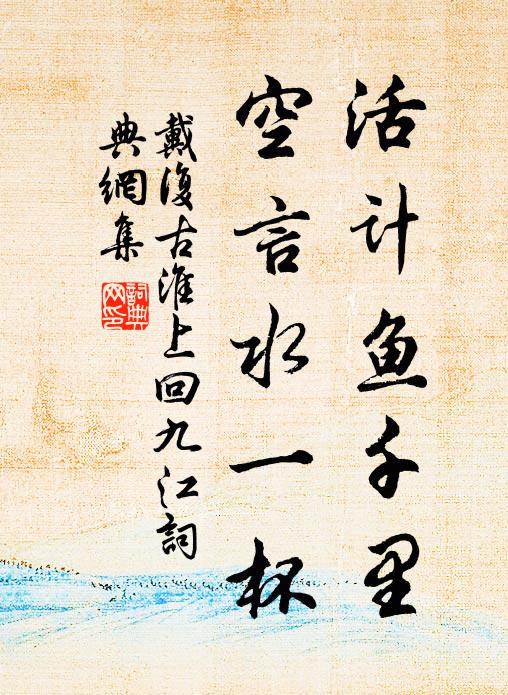 活计鱼千里
空言水一杯
戴復古淮上回九江詞
典網集
詞典
网印